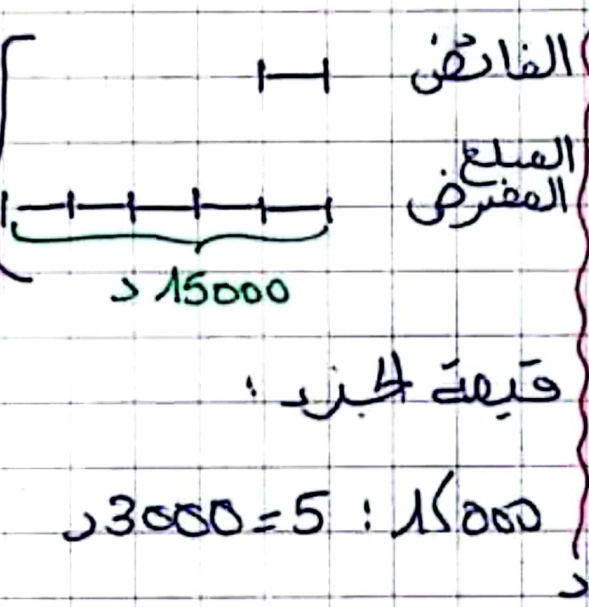 الفائض
المبلغ
المقترض
15000 د
قيمة الجزء :
15000 : 5 = 3000 د
د